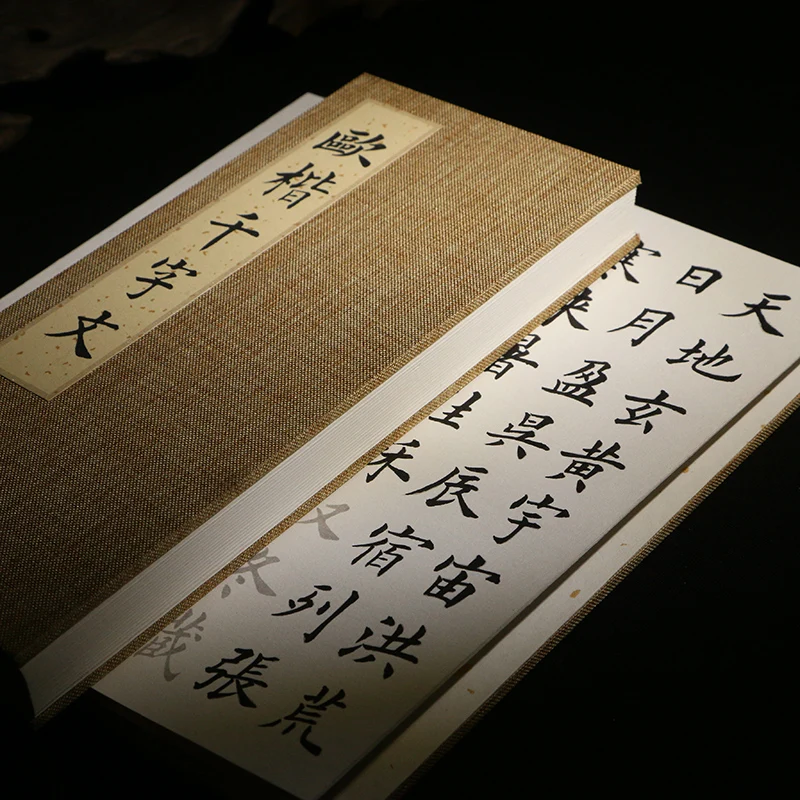 歐楷千字文
天地玄黃宇宙洪荒
日月盈昃辰宿列張
寒来暑往秋收冬藏